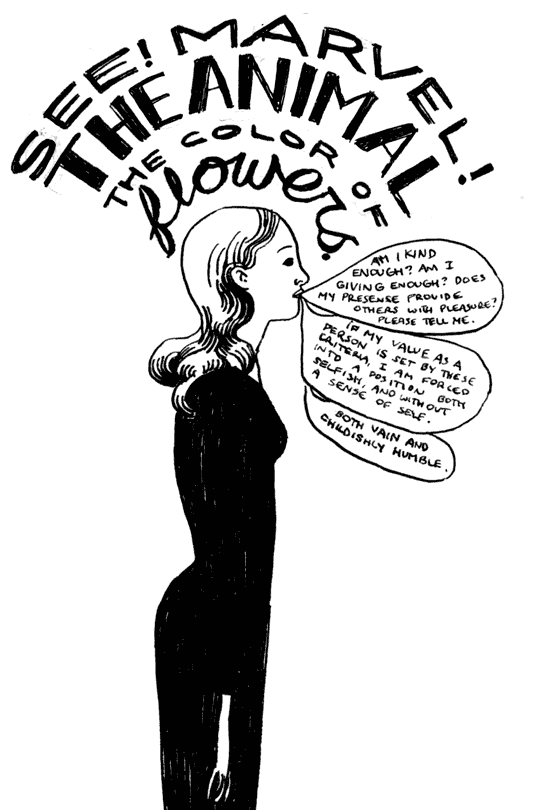 SEE! MARVEL!
THE ANIMAL
THE COLOR OF
flowers.
AM I KIND
ENOUGH? AM I
GIVING ENOUGH? DOES
MY PRESENSE PROVIDE
OTHERS WITH PLEASURE?
PLEASE TELL ME.
IF MY VALUE AS A
PERSON IS SET BY THESE
CRITERIA, I AM FORCED
INTO A POSITION BOTH
SELFISH, AND WITHOUT
A SENSE OF SELF.
BOTH VAIN AND
CHILDISHLY HUMBLE.